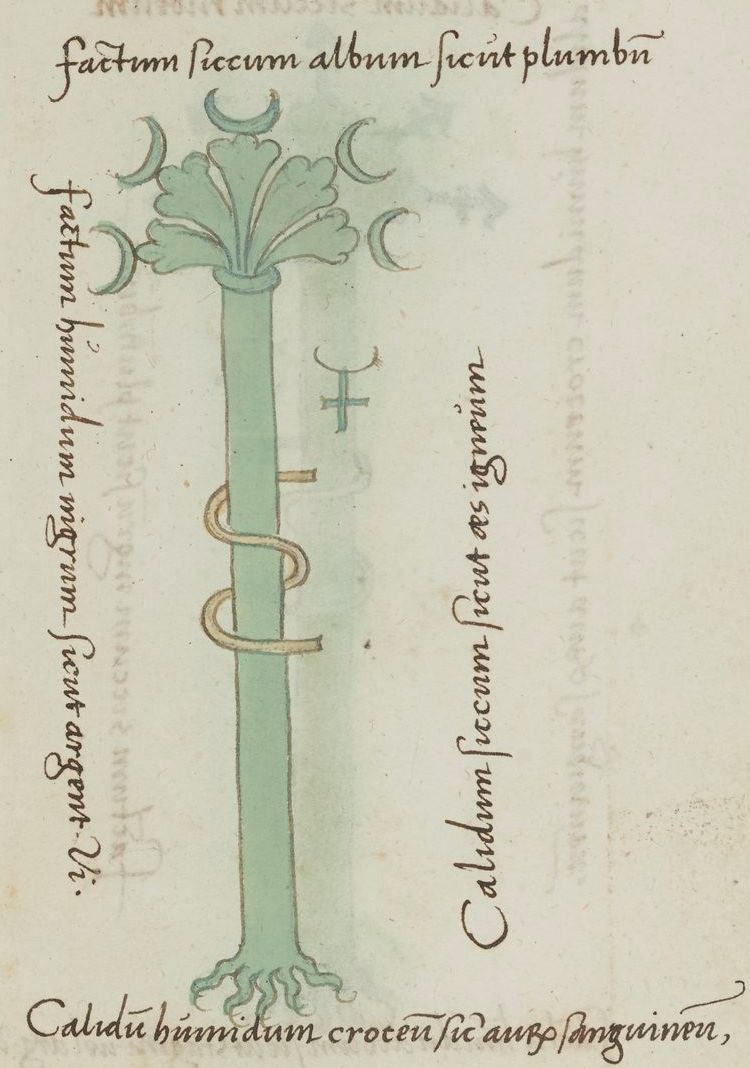 factum siccum album sicut plumbū
factum humidum nigrum sicut argent. Vi.
Calidum siccum sicut æs igneum
Calidū humidum croceū sic aurꝝ sanguineū,